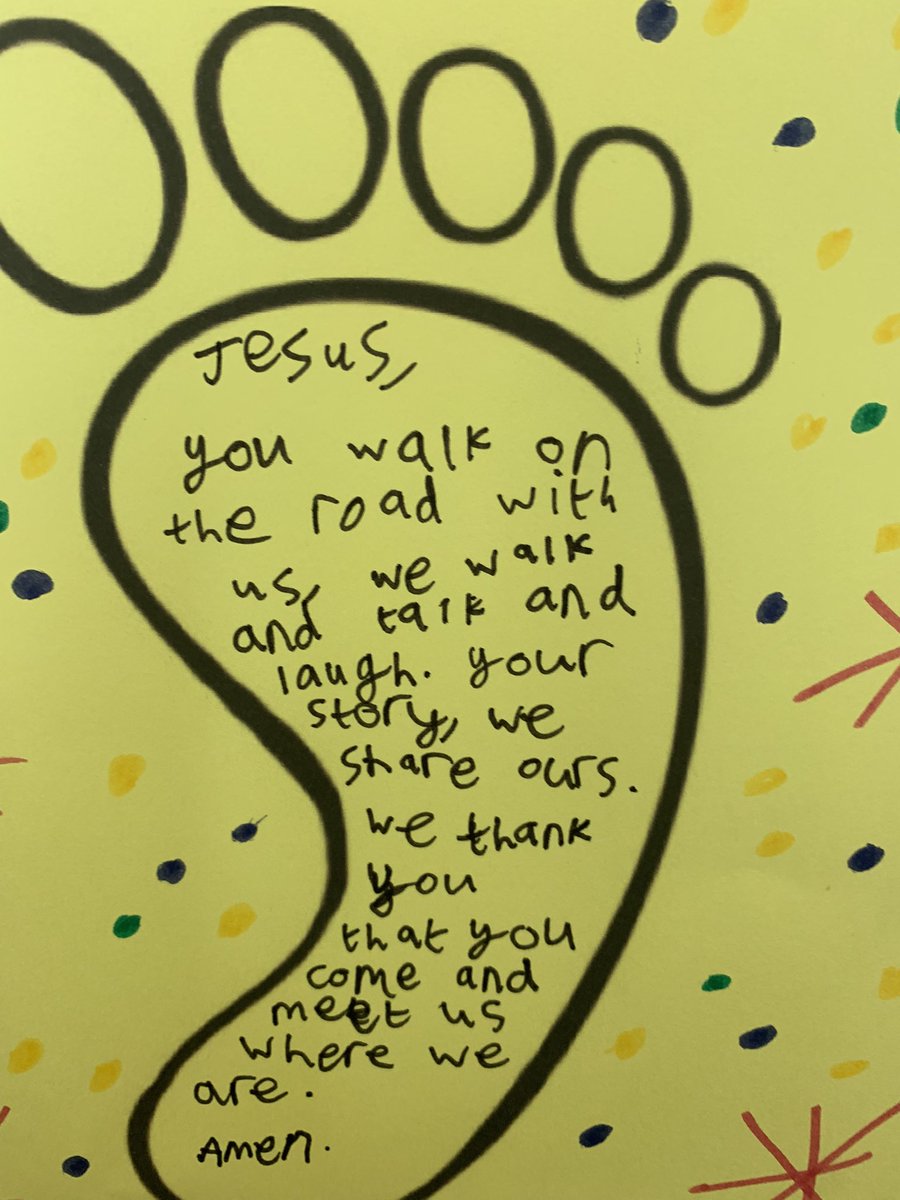 Jesus,
you walk on
the road with
us, we walk
and talk and
laugh. your
story, we
share ours.
we thank
you
that you
come and
meet us
where we
are.
Amen.